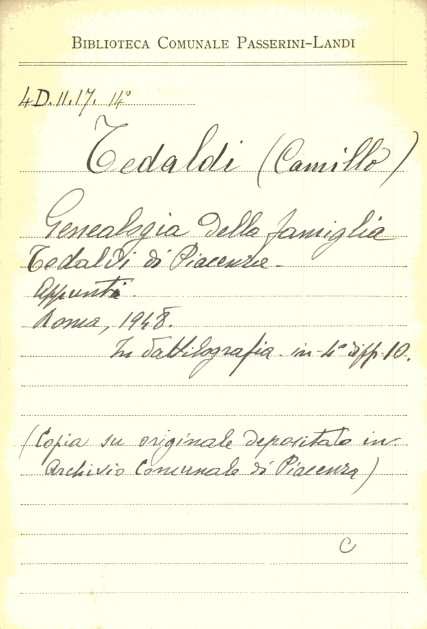 BIBLIOTECA COMUNALE PASSERINI-LANDI
4D.11.17. 14°
Tedaldi (Camillo)
Genealogia della famiglia
Tedaldi di Piacenza.
Appunti.
Roma, 1948.
In dattilografia in-4° di pp. 10.
(Copia su originale depositato in
Archivio Comunale di Piacenza)
C